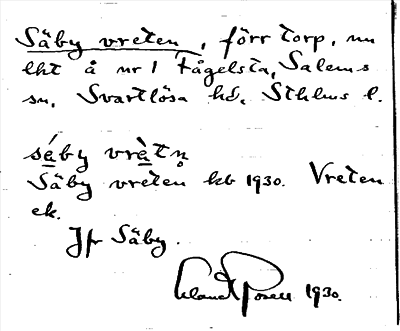 Säby vreten, förr torp, nu
lht å nr 1 Fågelsta, Salems
sn, Svartlösa hd, Sthlms l.
sé̱by vrè̱tn̥
Säby vreten kb 1930. Vreten
ek.
Jfr Säby.
1930.